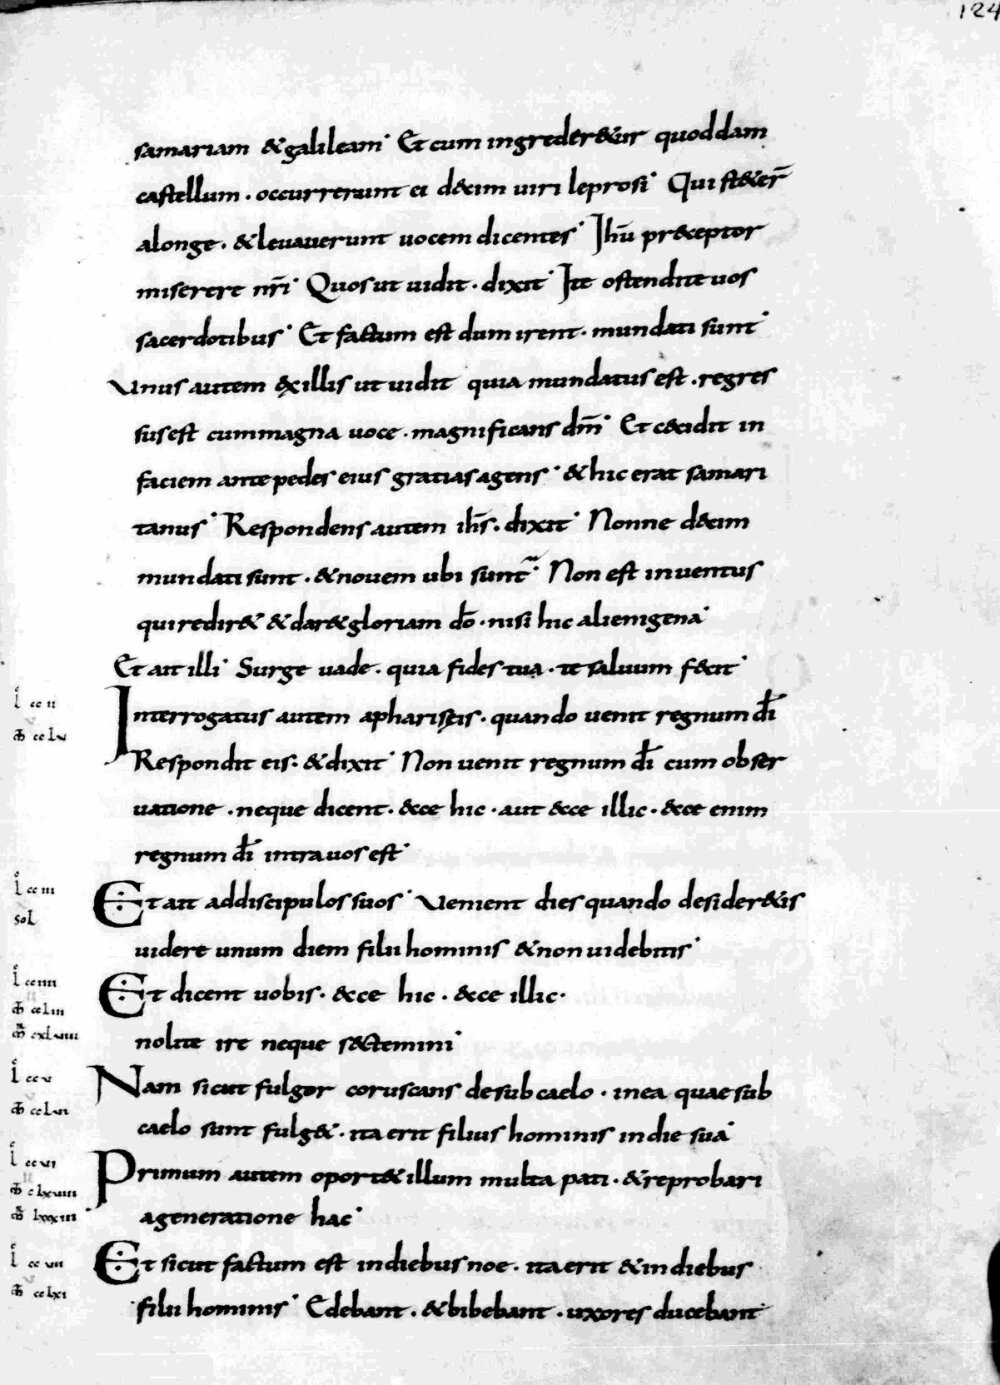 124
samariam &galileam· Et cum ingreder&ur quoddam
castellum · occurrerunt ei d&cim uiri leprosi· Qui st&er̄
alonge · &leuauerunt uocem dicentes· Ihū pr&ceptor
miserere nr̄i· Quos ut uidit · dixit· Ite ostendite uos
sacerdotibus· Et factum est dum irent · mundati sunt·
Unus autem &xillis ut uidit quia mundatus est · regres
sus est cum magna uoce · magnificans dm̄· Et c&cidit in
faciem ante pedes eius gratias agens· & hic erat samari
tanus· Respondens autem ihs̄ · dixit· Nonne d&cim
mundati sunt · &nouem ubi sunt· Non est inuentus
qui redir& &dar&gloriam dō · nisi hic alienigena·
Et ait illi· Surge uade · quia fides tua · te saluum f&cit·
l cc ii
Interrogatus autem aphariseis · quando uenit regnum dī
m̄ cc lu
Respondit eis : &dixit· Non uenit regnum dī cum obser
uatione · neque dicent · &cce hic · aut &cce illic · &cce enim
regnum dī intra uos est·
l cc iii
Et ait addiscipulos suos· Uenient dies quando desider&is
sol
uidere unum diem filii hominis &non uidebitis·
l cc iiii
Et dicent uobis · &cce hic · &cce illic ·
m̄ cc liii
m̄ cxluiii
nolite ire neque s&ctemini·
l cc u
Nam sicut fulgor coruscans desub caelo · inea quae sub
m̄ cc lui
caelo sunt fulg& · ita erit filius hominis in die sua·
l cc ui
Primum autem oport& illum multa pati · &reprobari
m̄ c lxuiii
m̄ lxxxiii
ageneratione hac·
l cc uii
Et sicut factum est indiebus noe · ita erit &indiebus
m̄ cc lxi
filii hominis· Edebant · &bibebant · uxores ducebant·